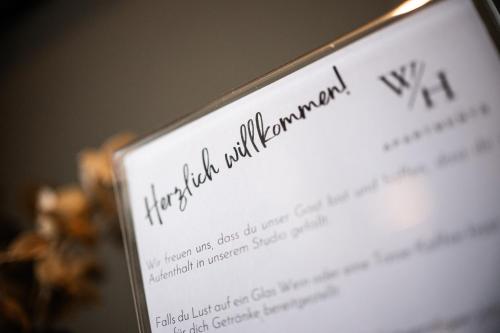 W/H
APARTMENTS
Herzlich willkommen!
Wir freuen uns, dass du unser Gast bist und hoffen, dass dir
Aufenthalt in unserem Studio gefällt.
Falls du Lust auf ein Glas Wein oder eine
für dich Getränke bereitgestellt